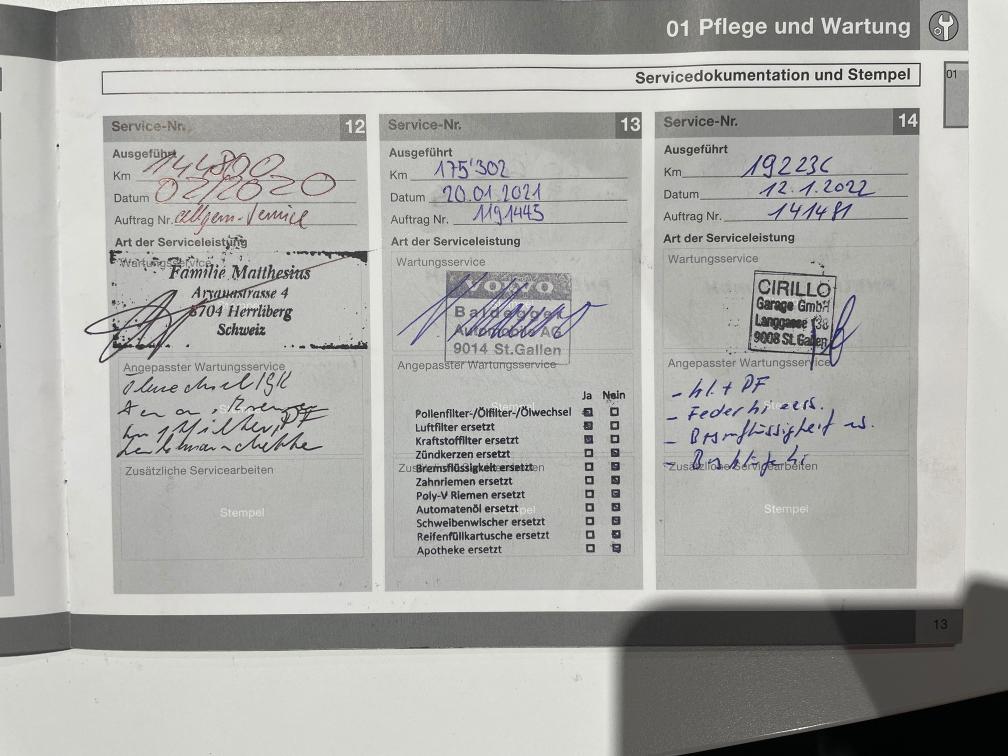 01 Pflege und Wartung
Servicedokumentation und Stempel
01
Service-Nr. 12
Ausgeführt
Km 144800
Datum 02/2020
Auftrag Nr. allgem. Service
Art der Serviceleistung
Wartungsservice
Familie Matthesius
Arvanastrasse 4
8704 Herrliberg
Schweiz
Angepasster Wartungsservice
Zusätzliche Servicearbeiten
Stempel
Service-Nr. 13
Ausgeführt
Km 175'302
Datum 20.01.2021
Auftrag Nr. 1191445
Art der Serviceleistung
Wartungsservice
VOLVO
Baldegger
Automobile AG
9014 St.Gallen
Angepasster Wartungsservice
Ja Nein
Pollenfilter-/Ölfilter-/Ölwechsel
Luftfilter ersetzt
Kraftstoffilter ersetzt
Zündkerzen ersetzt
Zusätzliche Servicearbeiten
Bremsflüssigkeit ersetzt
Zahnriemen ersetzt
Poly-V Riemen ersetzt
Automatenöl ersetzt
Schweibenwischer ersetzt
Reifenfüllkartusche ersetzt
Apotheke ersetzt
Service-Nr. 14
Ausgeführt
Km 192236
Datum 12.1.2022
Auftrag Nr. 141481
Art der Serviceleistung
Wartungsservice
CIRILLO
Garage GmbH
Langgasse 138
9008 St.Gallen
Angepasster Wartungsservice
- + PF
- Feder hi
- Bremsflüssigkeit
Zusätzliche Servicearbeiten
Stempel
13